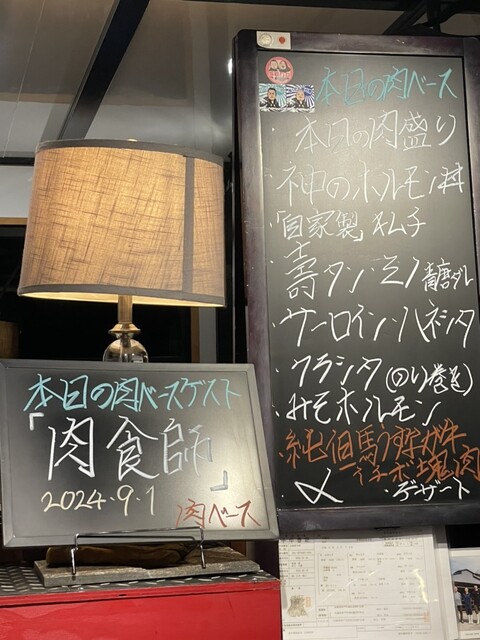 本日の肉ベース
・本日の肉盛り
神のホルモン丼
・「自家製」キムチ
・壽タン・ミノ 青唐ダレ
・サーロイン・ハネシタ
・クラシタ(のり巻き)
・みそホルモン
・純但馬
イチボ塊肉
・〆
・デザート
本日の肉ベースゲスト
「肉食師」
2024.9.1
肉ベース